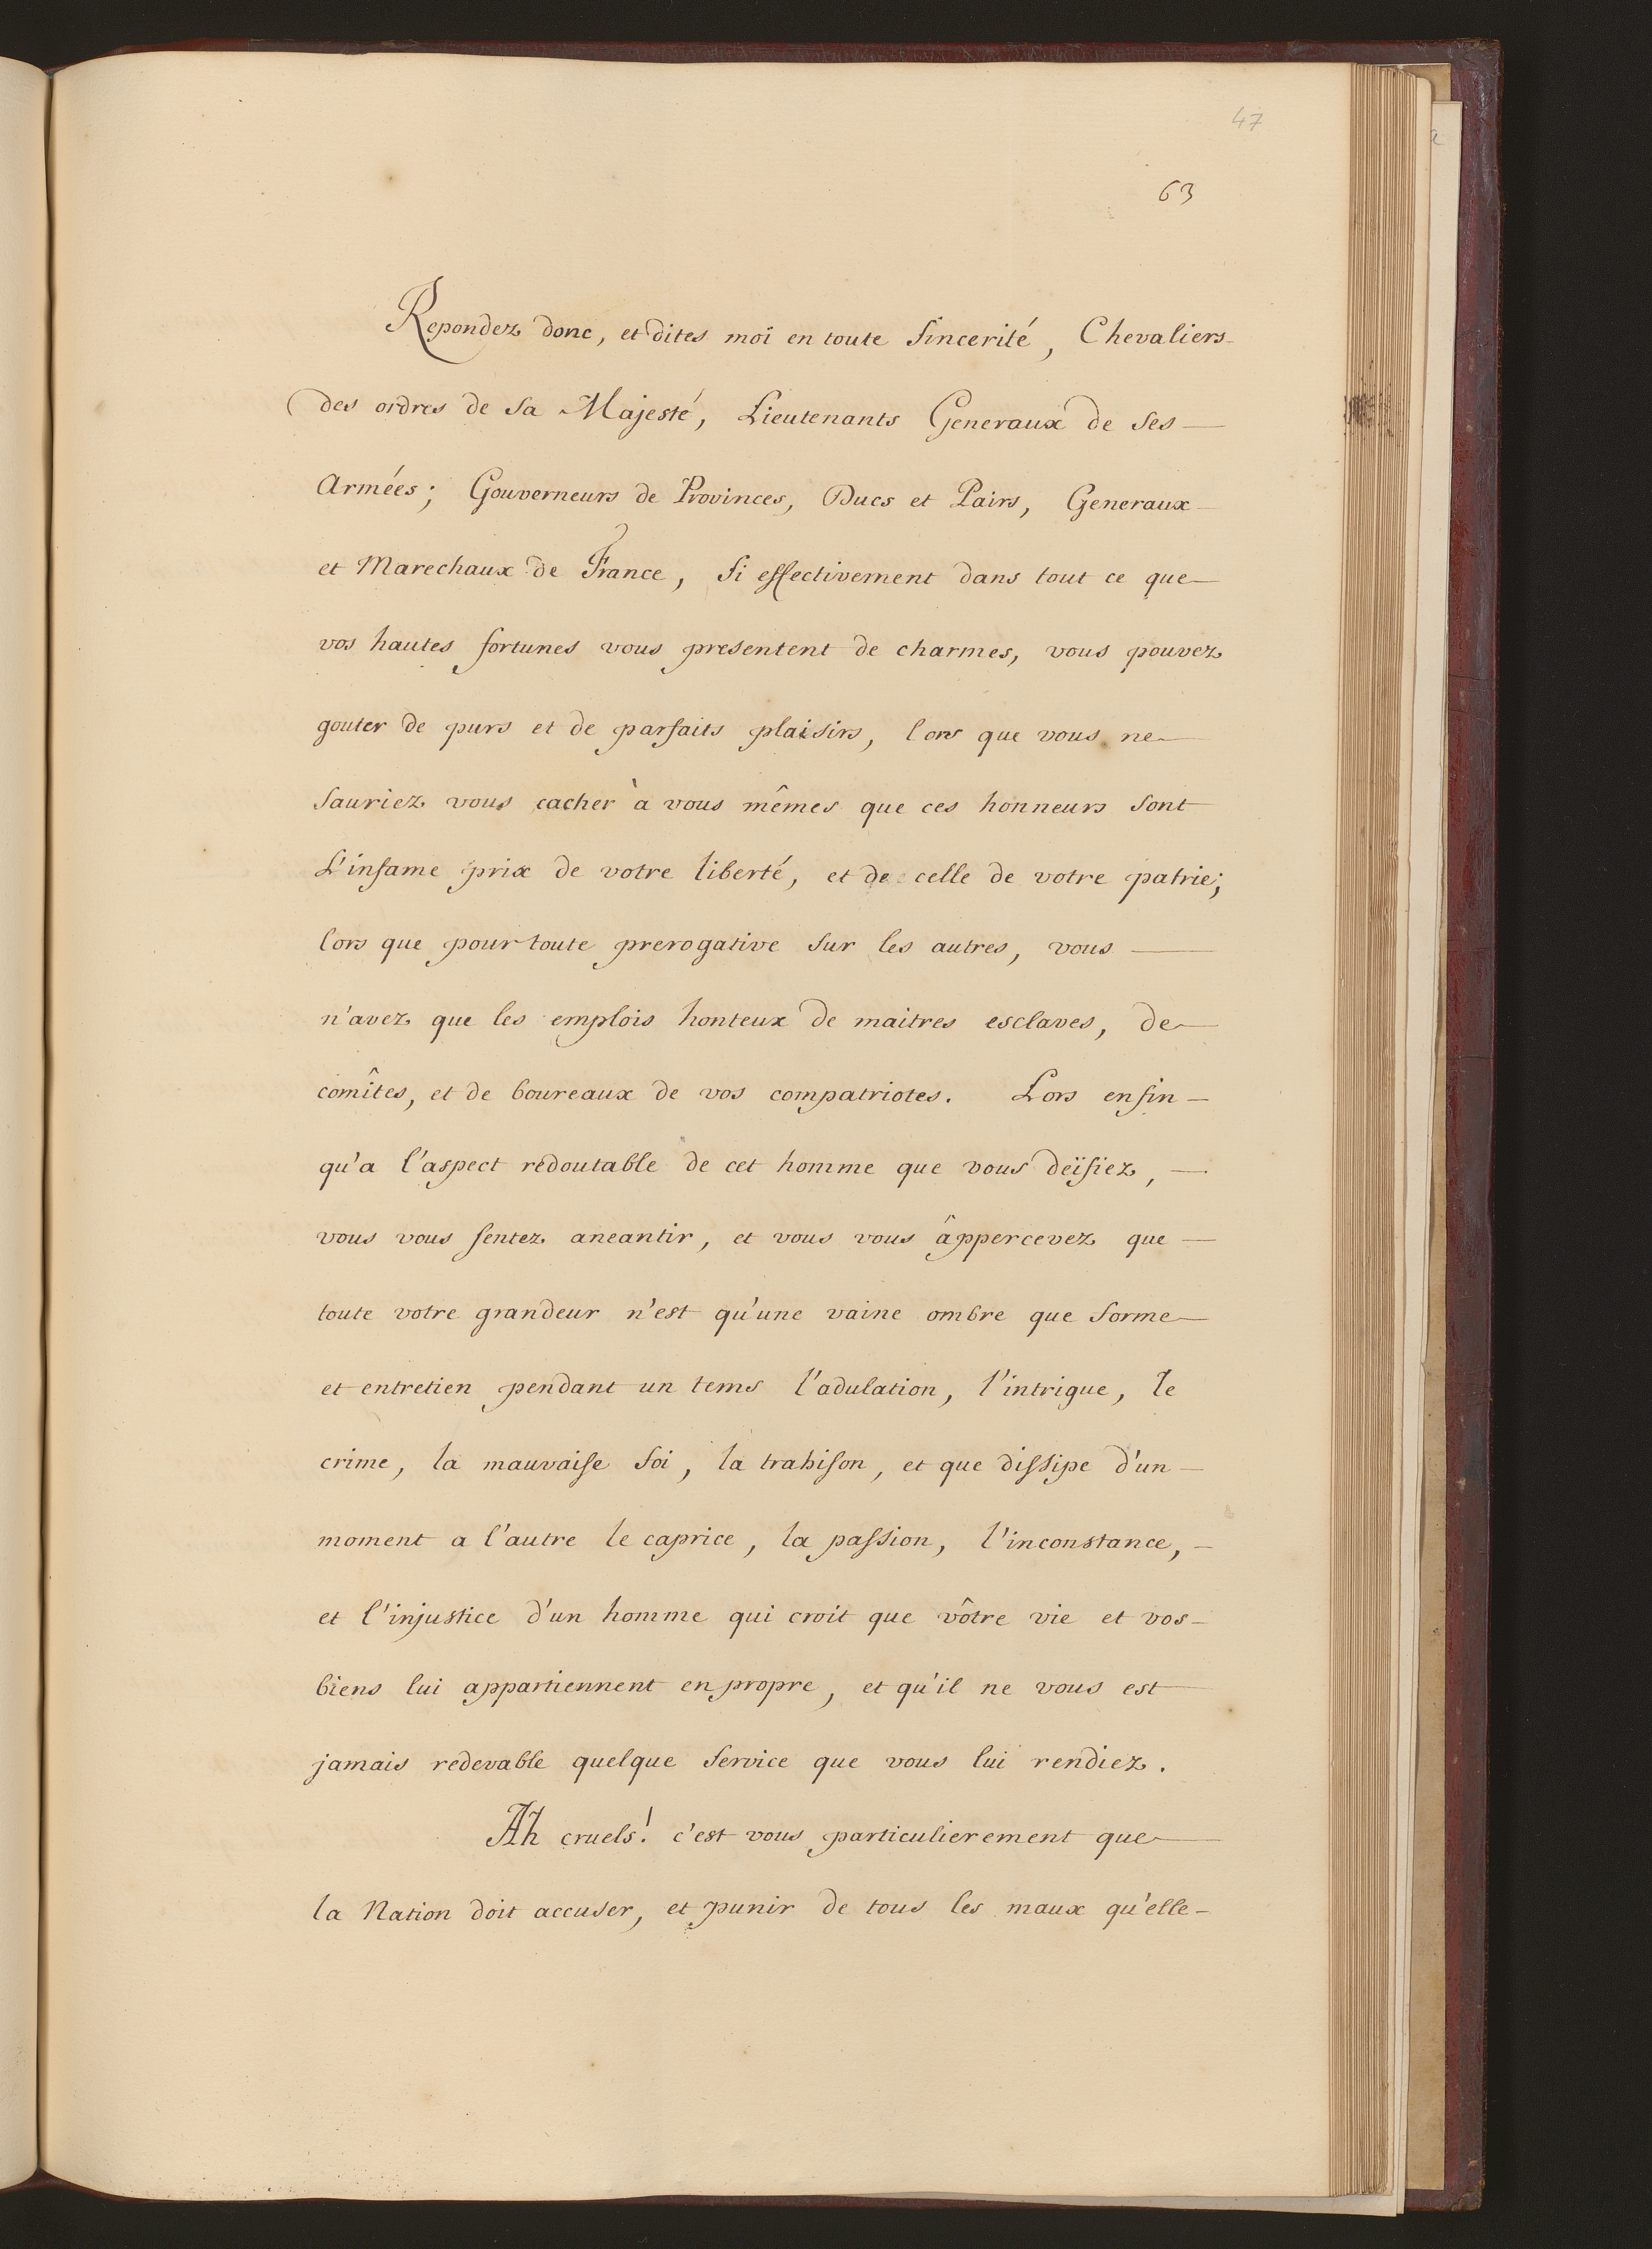 47
63
Repondez donc, et dites moi en toute sincerité, Chevaliers
des ordres de sa Majesté, Lieutenants Generaux de ses
Armées; Gouverneurs de Provinces, Ducs et Pairs, Generaux
et Marechaux de France, si effectivement dans tout ce que
vos hautes fortunes vous presentent de charmes, vous pouvez
gouter de purs et de parfaits plaisirs, lors que vous ne
sauriez vous cacher à vous mêmes que ces honneurs sont
L'infame prix de votre liberté, et de celle de votre patrie;
lors que pour toute prerogative sur les autres, vous
n'avez que les emplois honteux de maitres esclaves, de
comîtes, et de boureaux de vos compatriotes. Lors enfin
qu'a l'aspect redoutable de cet homme que vous deïfiez,
vous vous sentez aneantir, et vous vous âppercevez que
toute votre grandeur n'est qu'une vaine ombre que forme
et entretien pendant un tems l'adulation, l'intrigue, le
crime, la mauvaise foi, la trahison, et que dissipe d'un
moment a l'autre le caprice, la passion, l'inconstance,
et l'injustice d'un homme qui croit que vôtre vie et vos
biens lui appartiennent en propre, et qu'il ne vous est
jamais redevable quelque service que vous lui rendiez.
Ah cruels! c'est vous particulierement que
la Nation doit accuser, et punir de tous les maux qu'elle